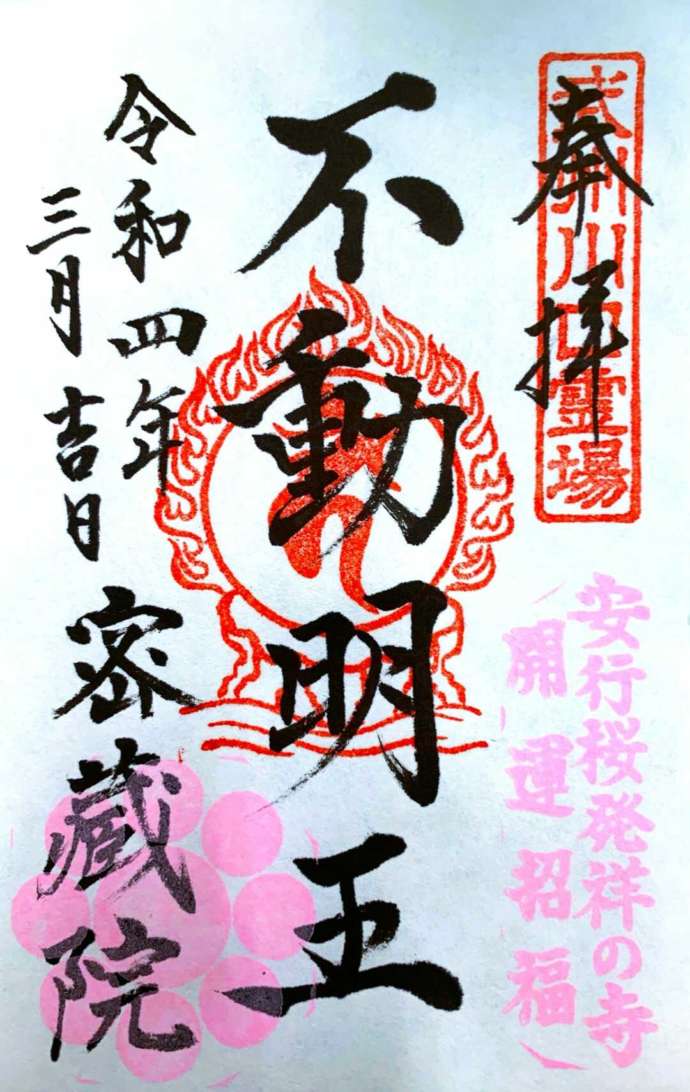 奉拝
武州川口霊場
安行桜発祥の寺
開運招福
不動明王
令和四年
三月吉日
密蔵院